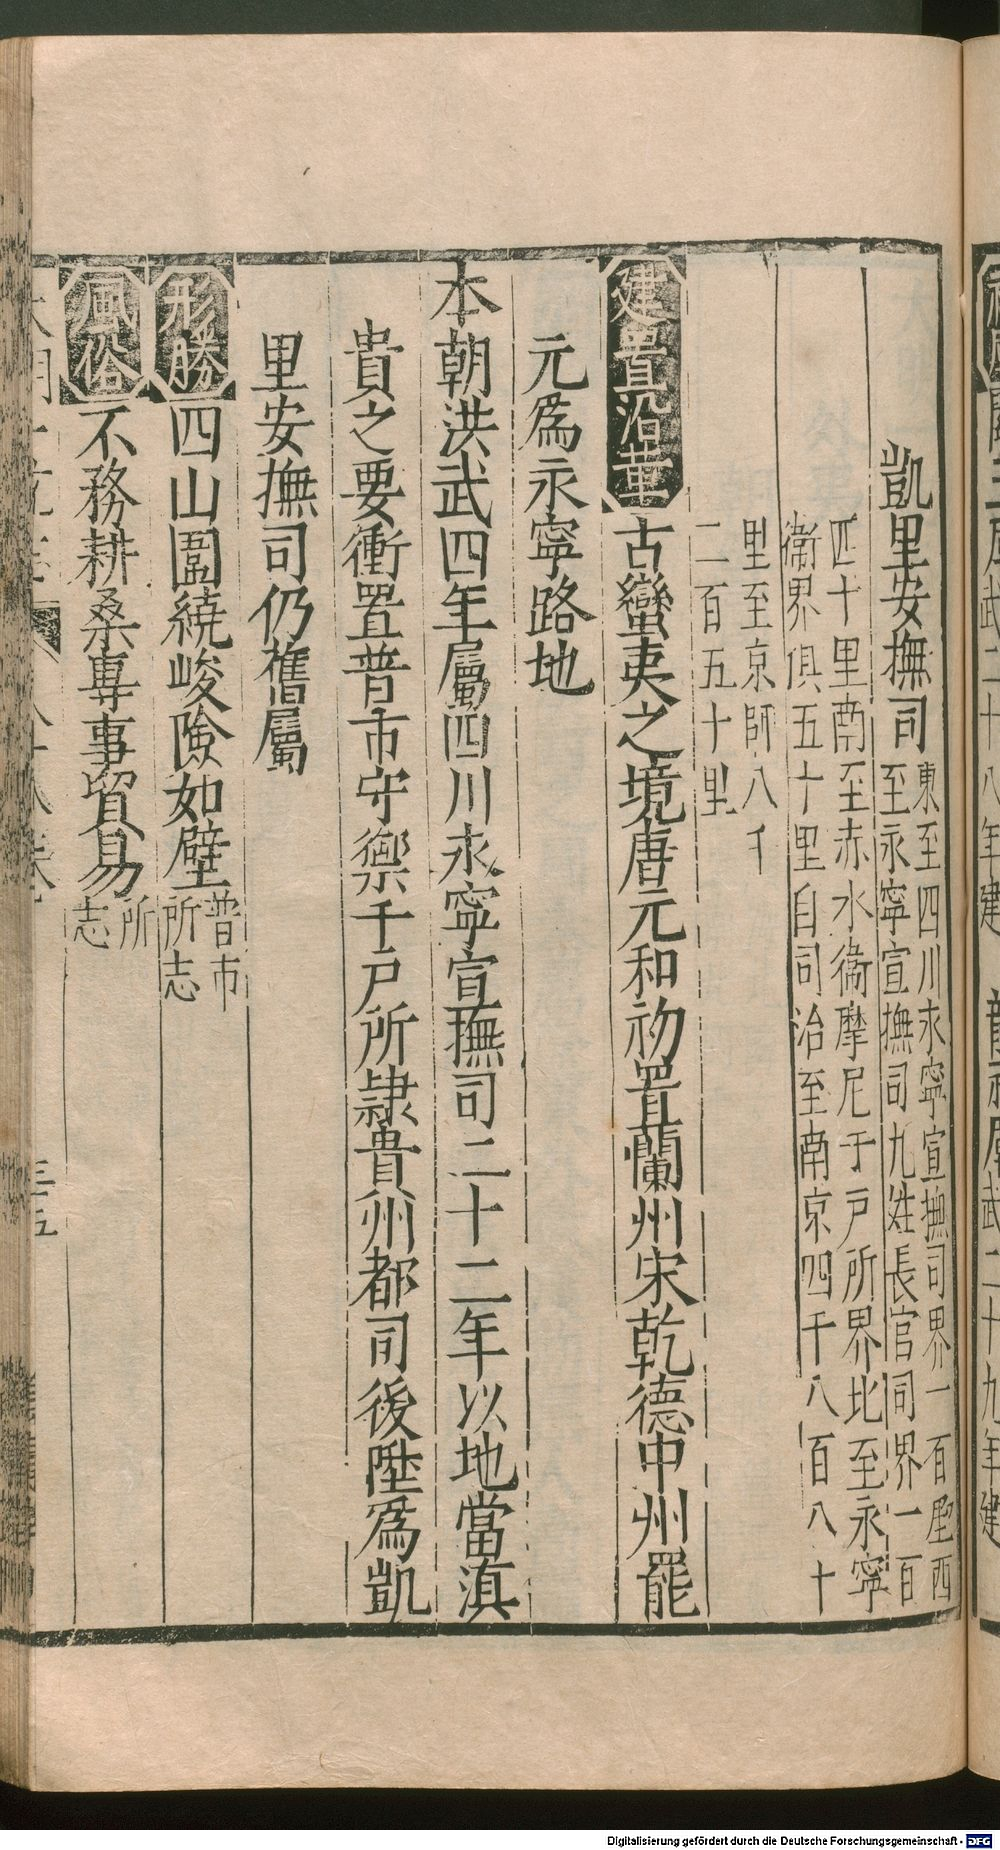 凱里安撫司東至四川永寧宣撫司界一百里西
至永寧宣撫司九姓長官司界一百
四十里南至赤水衞摩尼千戶所界北至永寧
衞界俱五十里自司治至南京四千八百八十
里至京師八千
二百五十里
建置沿革古蠻夷之境唐元和初置藺州宋乾德中州罷
元爲永寧路地
本朝洪武四年屬四川永寧宣撫司二十二年以地當滇
貴之要衝置普市守禦千戶所隷貴州都司後陞爲凱
里安撫司仍舊屬
形勝四山圍繞峻險如壁普市
所志
風俗不務耕桑專事貿易所
志
三五
Digitalisierung gefördert durch die Deutsche Forschungsgemeinschaft - DFG